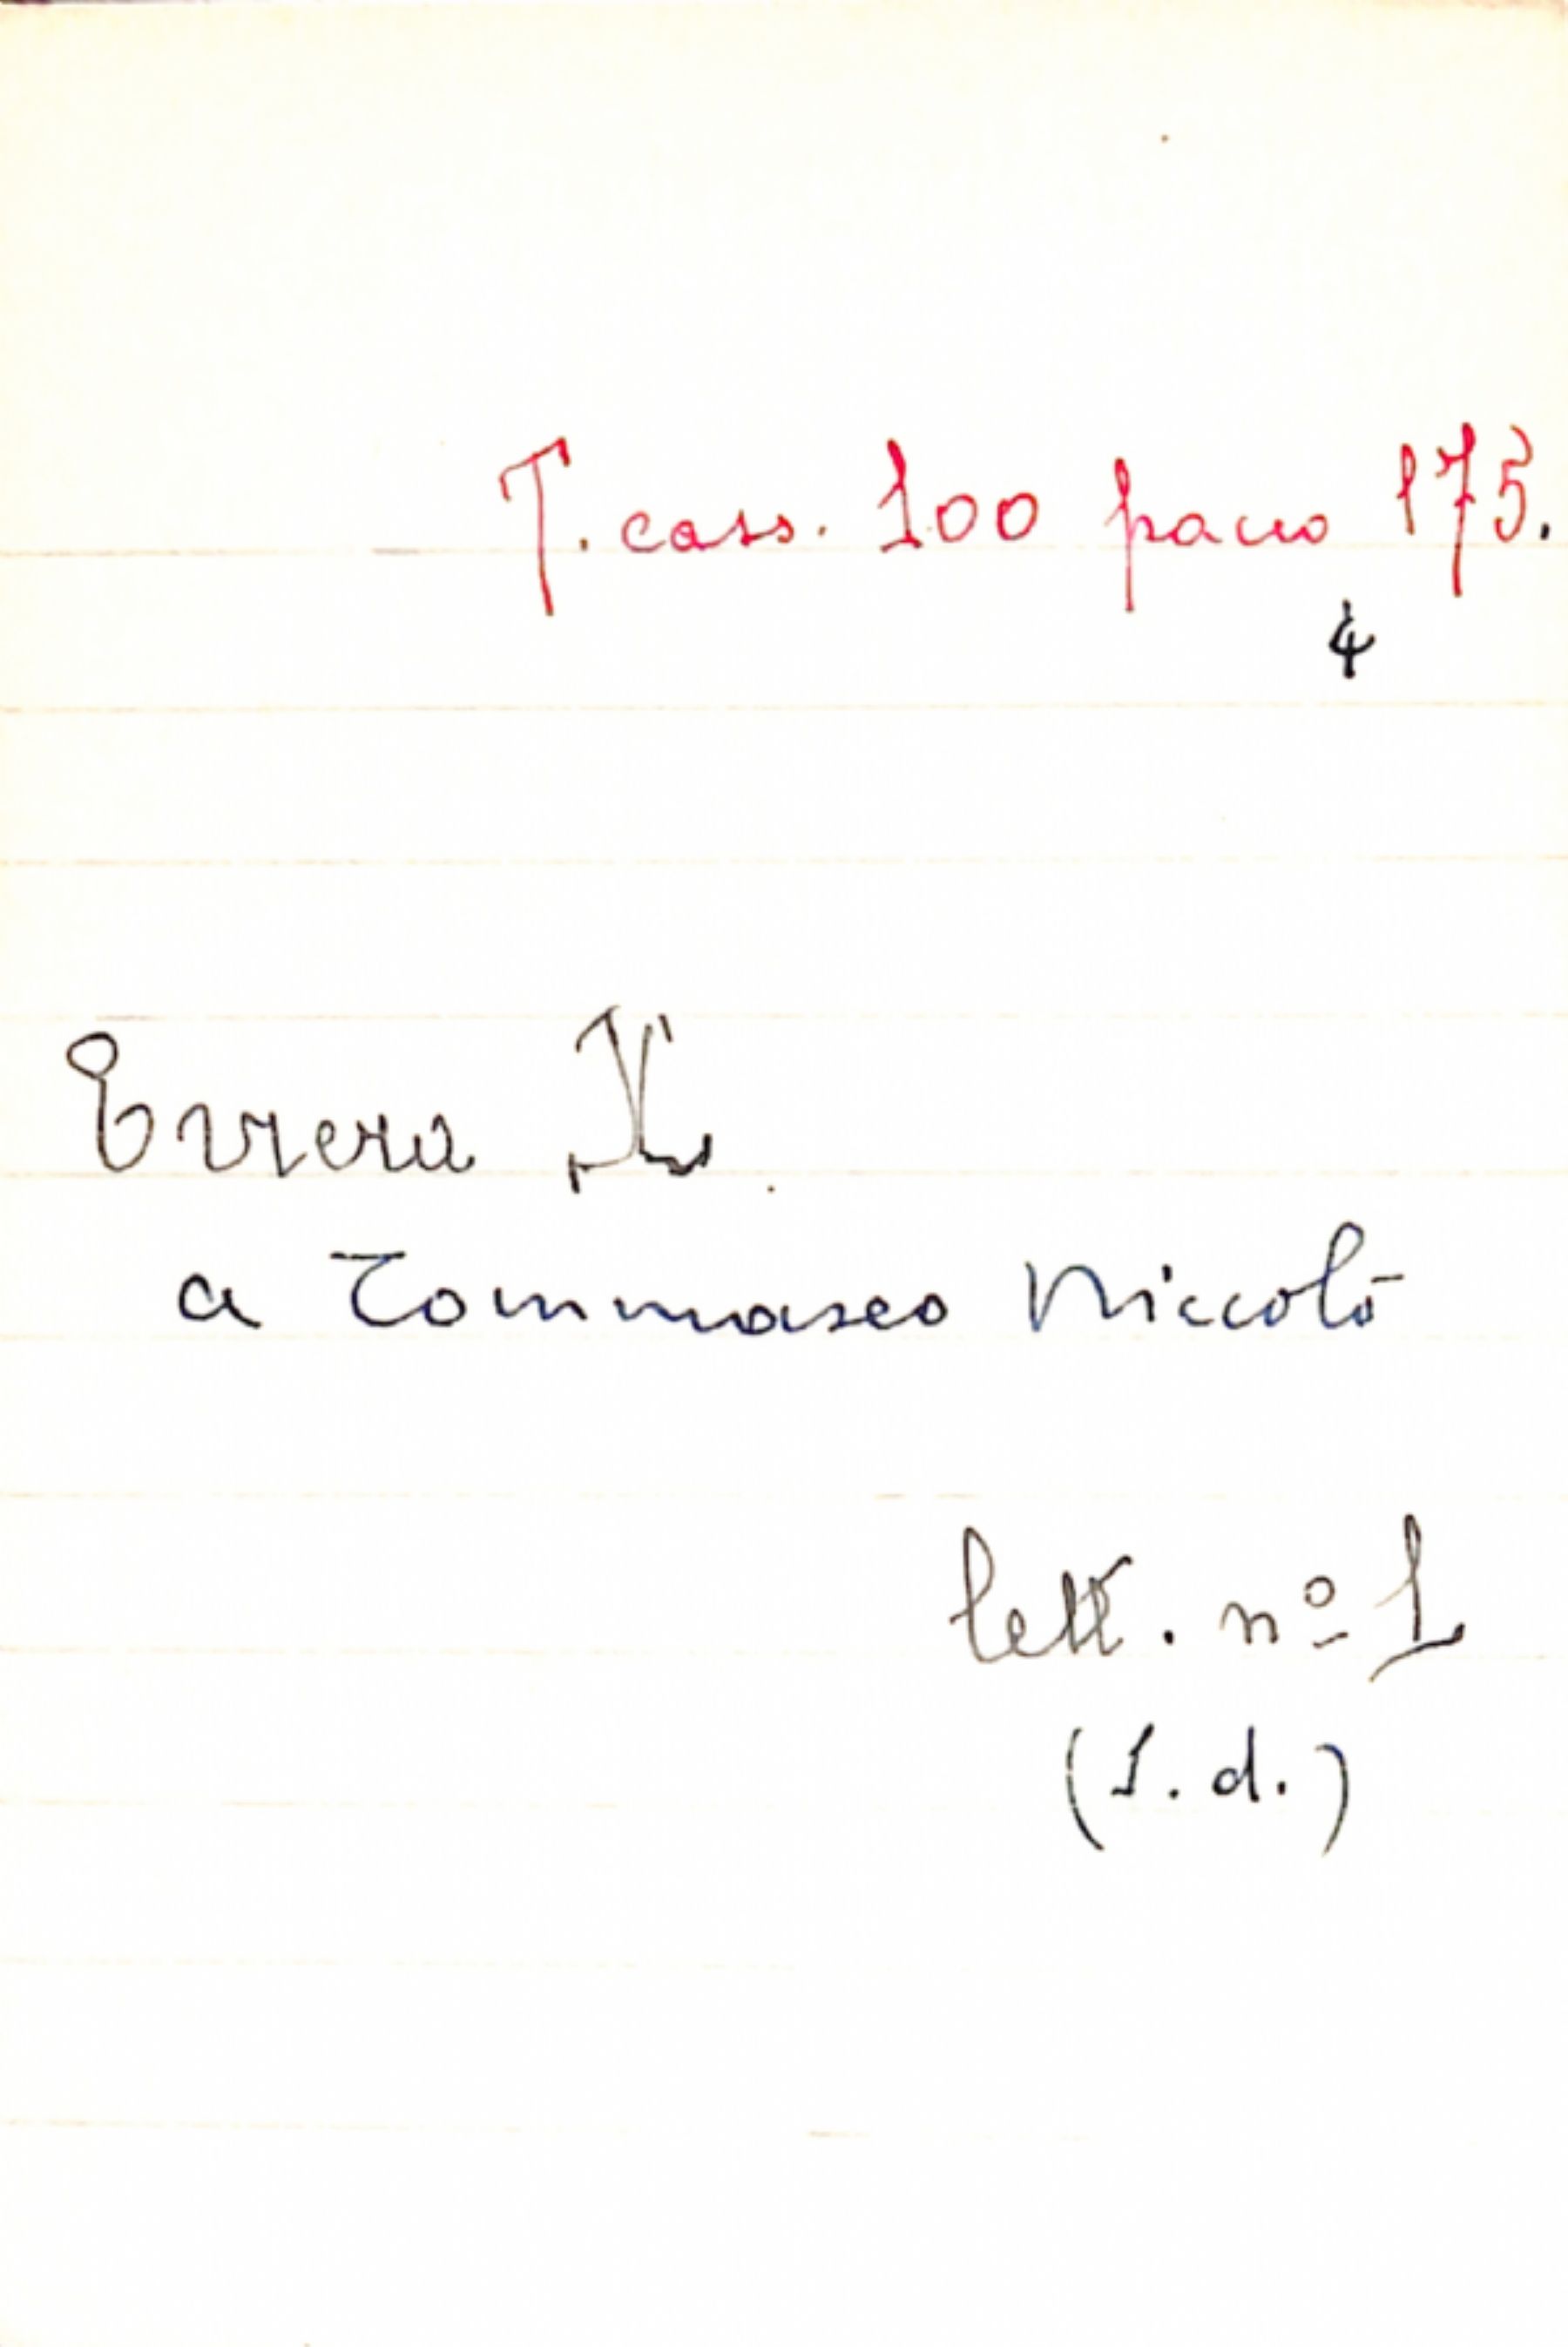 T. cass. 100 pacco 175.
4
Errera
a Tommaseo Niccolò
lett. nº 1
(s. d.)